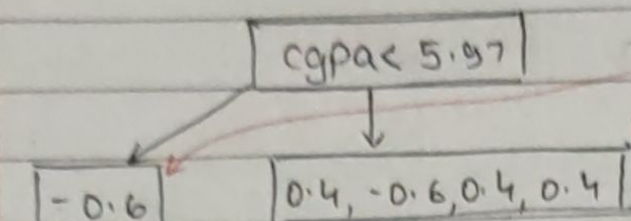 cgpa< 5.97
-0.6
0.4, -0.6, 0.4, 0.4